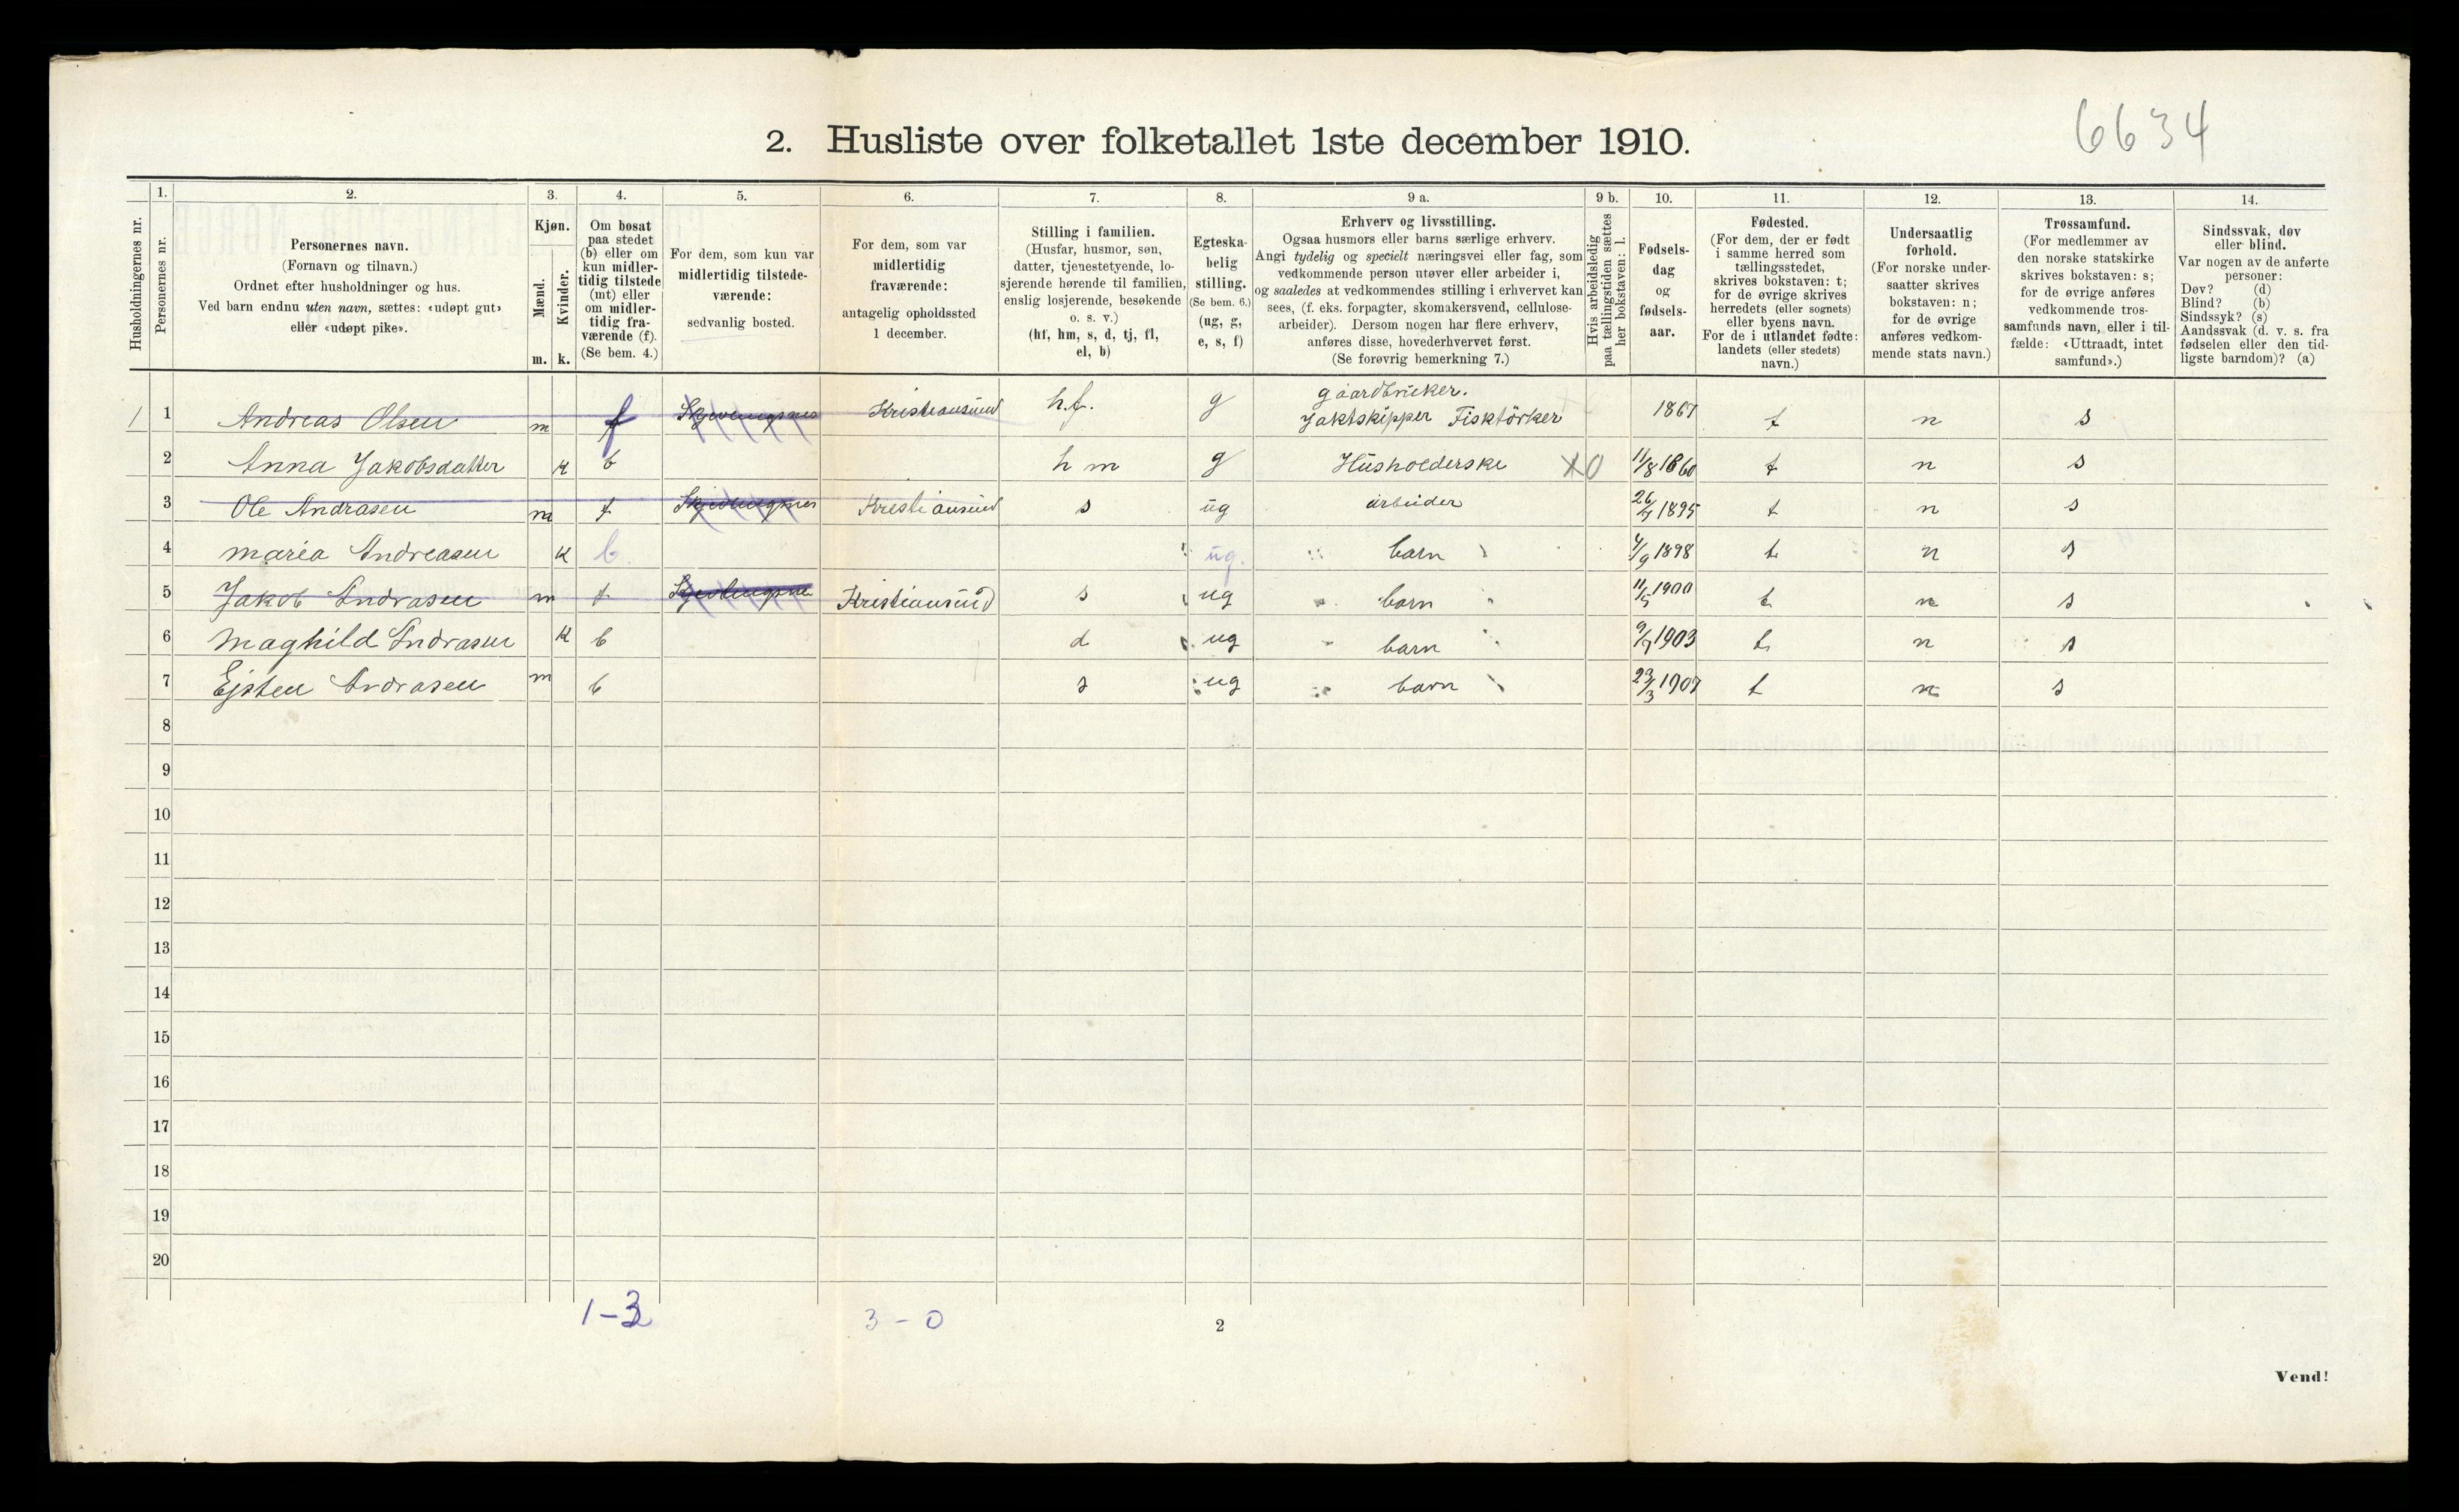 6634
2. Husliste over folketallet 1ste december 1910.
Husholdningernes nr.
1.
Personernes nr.
2.
Personernes navn.
(Fornavn og tilnavn.)
Ordnet efter husholdninger og hus.
Ved barn endnu uten navn, sættes: «udøpt gut»
eller «udøpt pike».
3.
Kjøn.
Mænd.
Kvinder.
m. k.
4.
Om bosat
paa stedet
(b) eller om
kun midler-
tidig tilstede
(mt) eller
om midler-
tidig fra-
værende (f).
(Se bem. 4.)
5.
For dem, som kun var
midlertidig tilstede-
værende:
sedvanlig bosted.
6.
For dem, som var
midlertidig
fraværende:
antagelig opholdssted
1 december.
7.
Stilling i familien.
(Husfar, husmor, søn,
datter, tjenestetyende, lo-
sjerende hørende til familien,
enslig losjerende, besøkende
o. s. v.)
(hf, hm, s, d, tj, fl,
el, b)
8.
Egteska-
belig
stilling.
(Se bem. 6.)
(ug, g,
e, s, f)
9 a.
Erhverv og livsstilling.
Ogsaa husmors eller barns særlige erhverv.
Angi tydelig og specielt næringsvei eller fag, som
vedkommende person utøver eller arbeider i,
og saaledes at vedkommendes stilling i erhvervet kan
sees, (f. eks. forpagter, skomakersvend, cellulose-
arbeider). Dersom nogen har flere erhverv,
anføres disse, hovederhvervet først.
(Se forøvrig bemerkning 7.)
9 b.
Hvis arbeidsledig
paa tællingstiden sættes
her bokstaven: l.
10.
Fødsels-
dag
og
fødsels-
aar.
11.
Fødested.
(For dem, der er født
i samme herred som
tællingsstedet,
skrives bokstaven: t;
for de øvrige skrives
herredets (eller sognets)
eller byens navn.
For de i utlandet fødte:
landets (eller stedets)
navn.)
12.
Undersaatlig
forhold.
(For norske under-
saatter skrives
bokstaven: n;
for de øvrige
anføres vedkom-
mende stats navn.)
13.
Trossamfund.
(For medlemmer av
den norske statskirke
skrives bokstaven: s;
for de øvrige anføres
vedkommende tros-
samfunds navn, eller i til-
fælde: «Uttraadt, intet
samfund».)
14.
Sindssvak, døv
eller blind.
Var nogen av de anførte
personer:
Døv? (d)
Blind? (b)
Sindssyk? (s)
Aandssvak (d. v. s. fra
fødselen eller den tid-
ligste barndom)? (a)
gaardbruker.
1 1 Andreas Olsen m f Kristiansund h.f. g Jaktskipper Fisktörker 1867 t n s
2 Anna Jakobsdatter k b h m g Husholderske XO 11/8 1860 t n s
3 Ole Andrasen m f Kristiansund s ug arbeider 26/7 1895 t n s
4 Maria Andreasen k b ug. barn 4/9 1898 t n s
5 Jakob Andrasen m f Kristiansund s ug barn 11/5 1900 t n s
6 Maghild Andrasen k b d ug barn 9/7 1903 t n s
7 Ejsten Andrasen m b s ug barn 23/3 1907 t n s
8
9
10
11
12
13
14
15
16
17
18
19
20
1-3 3-0 2
Vend!